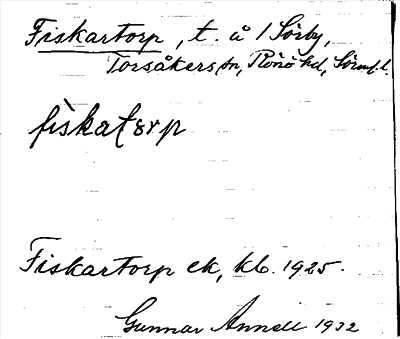 Fiskartorp, t. å 1 Sörby,
Torsåkers sn, Rönö hd, Sörml. l.
fiskatorp
Fiskartorp ek, kb. 1925.
Gunnar Annell 1932